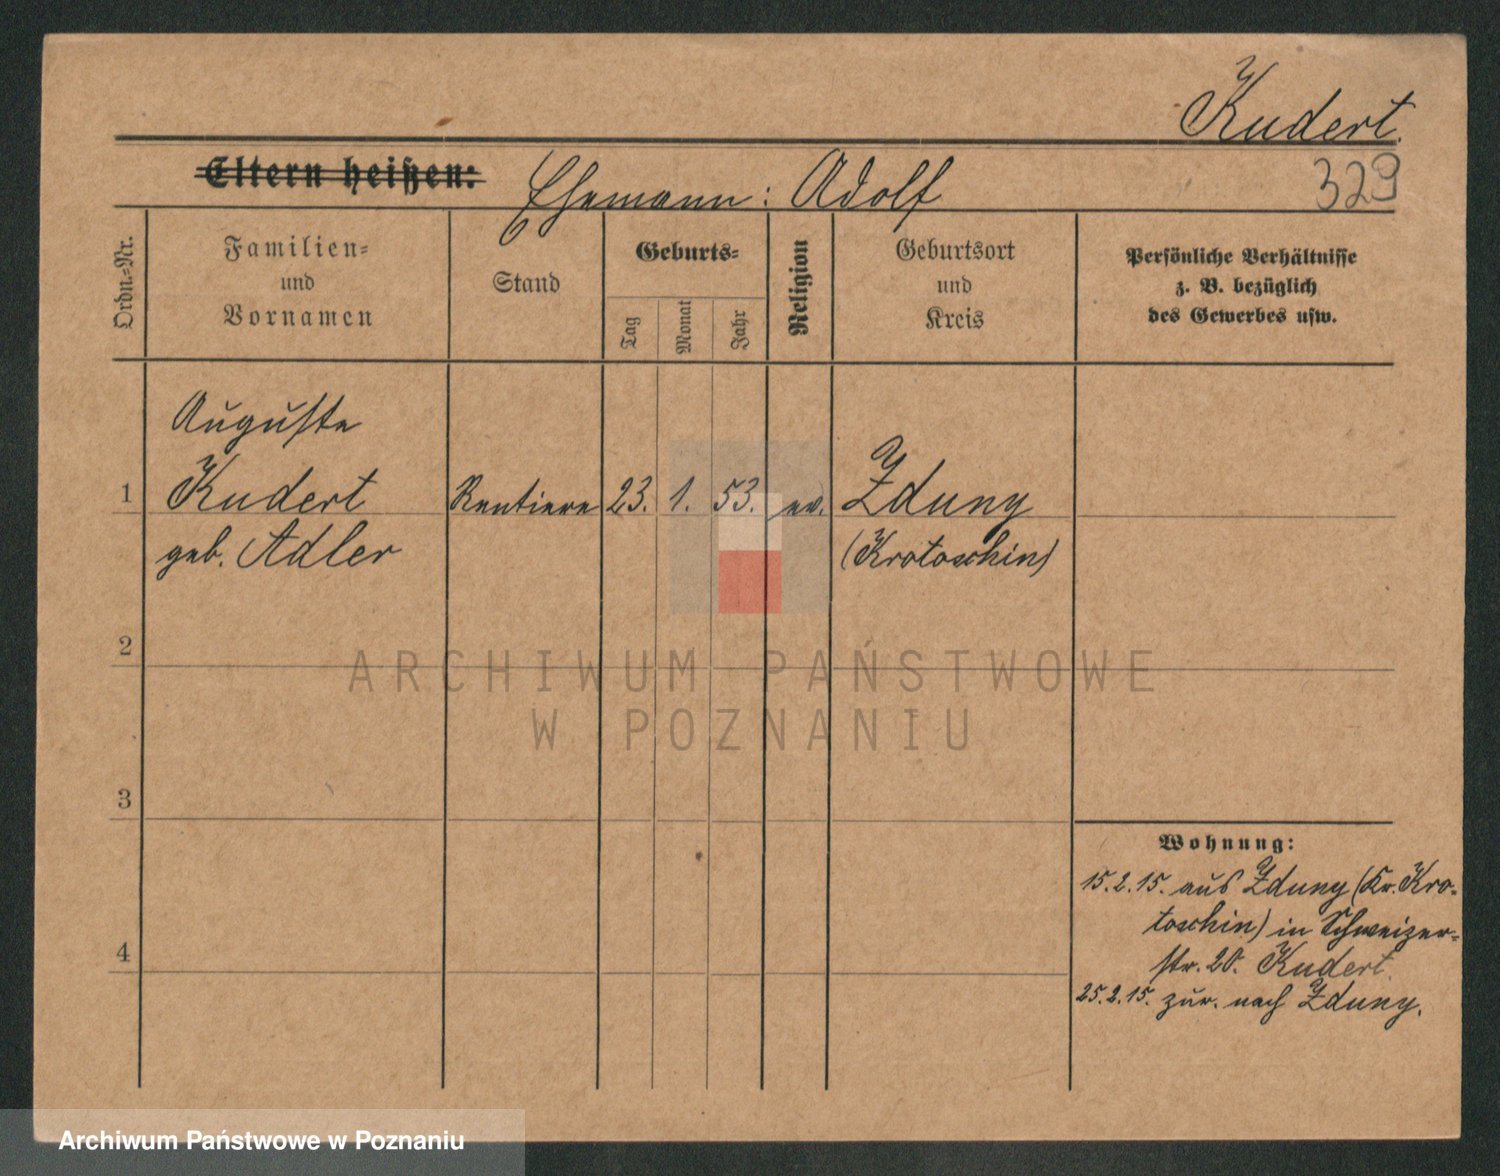 Kudert.
Eltern heißen: Ehemann: Adolf
329
Ordn.-Nr.
Familien-
und
Vornamen
Stand
Geburts-
Tag
Monat
Jahr
Religion
Geburtsort
und
Kreis
Persönliche Verhältnisse
z. B. bezüglich
des Gewerbes usw.
Auguste
1 Kudert Rentiere 23. 1. 53. ev. Zduny
geb. Adler (Krotoschin)
2
ARCHIWUM PAŃSTWOWE
W POZNANIU
3
Wohnung:
15.2.15. aus Zduny (Kr. Kro-
toschin) in Schweizer-
str. 20. Kudert.
4
25.2.15. zur. nach Zduny.
Archiwum Państwowe w Poznaniu